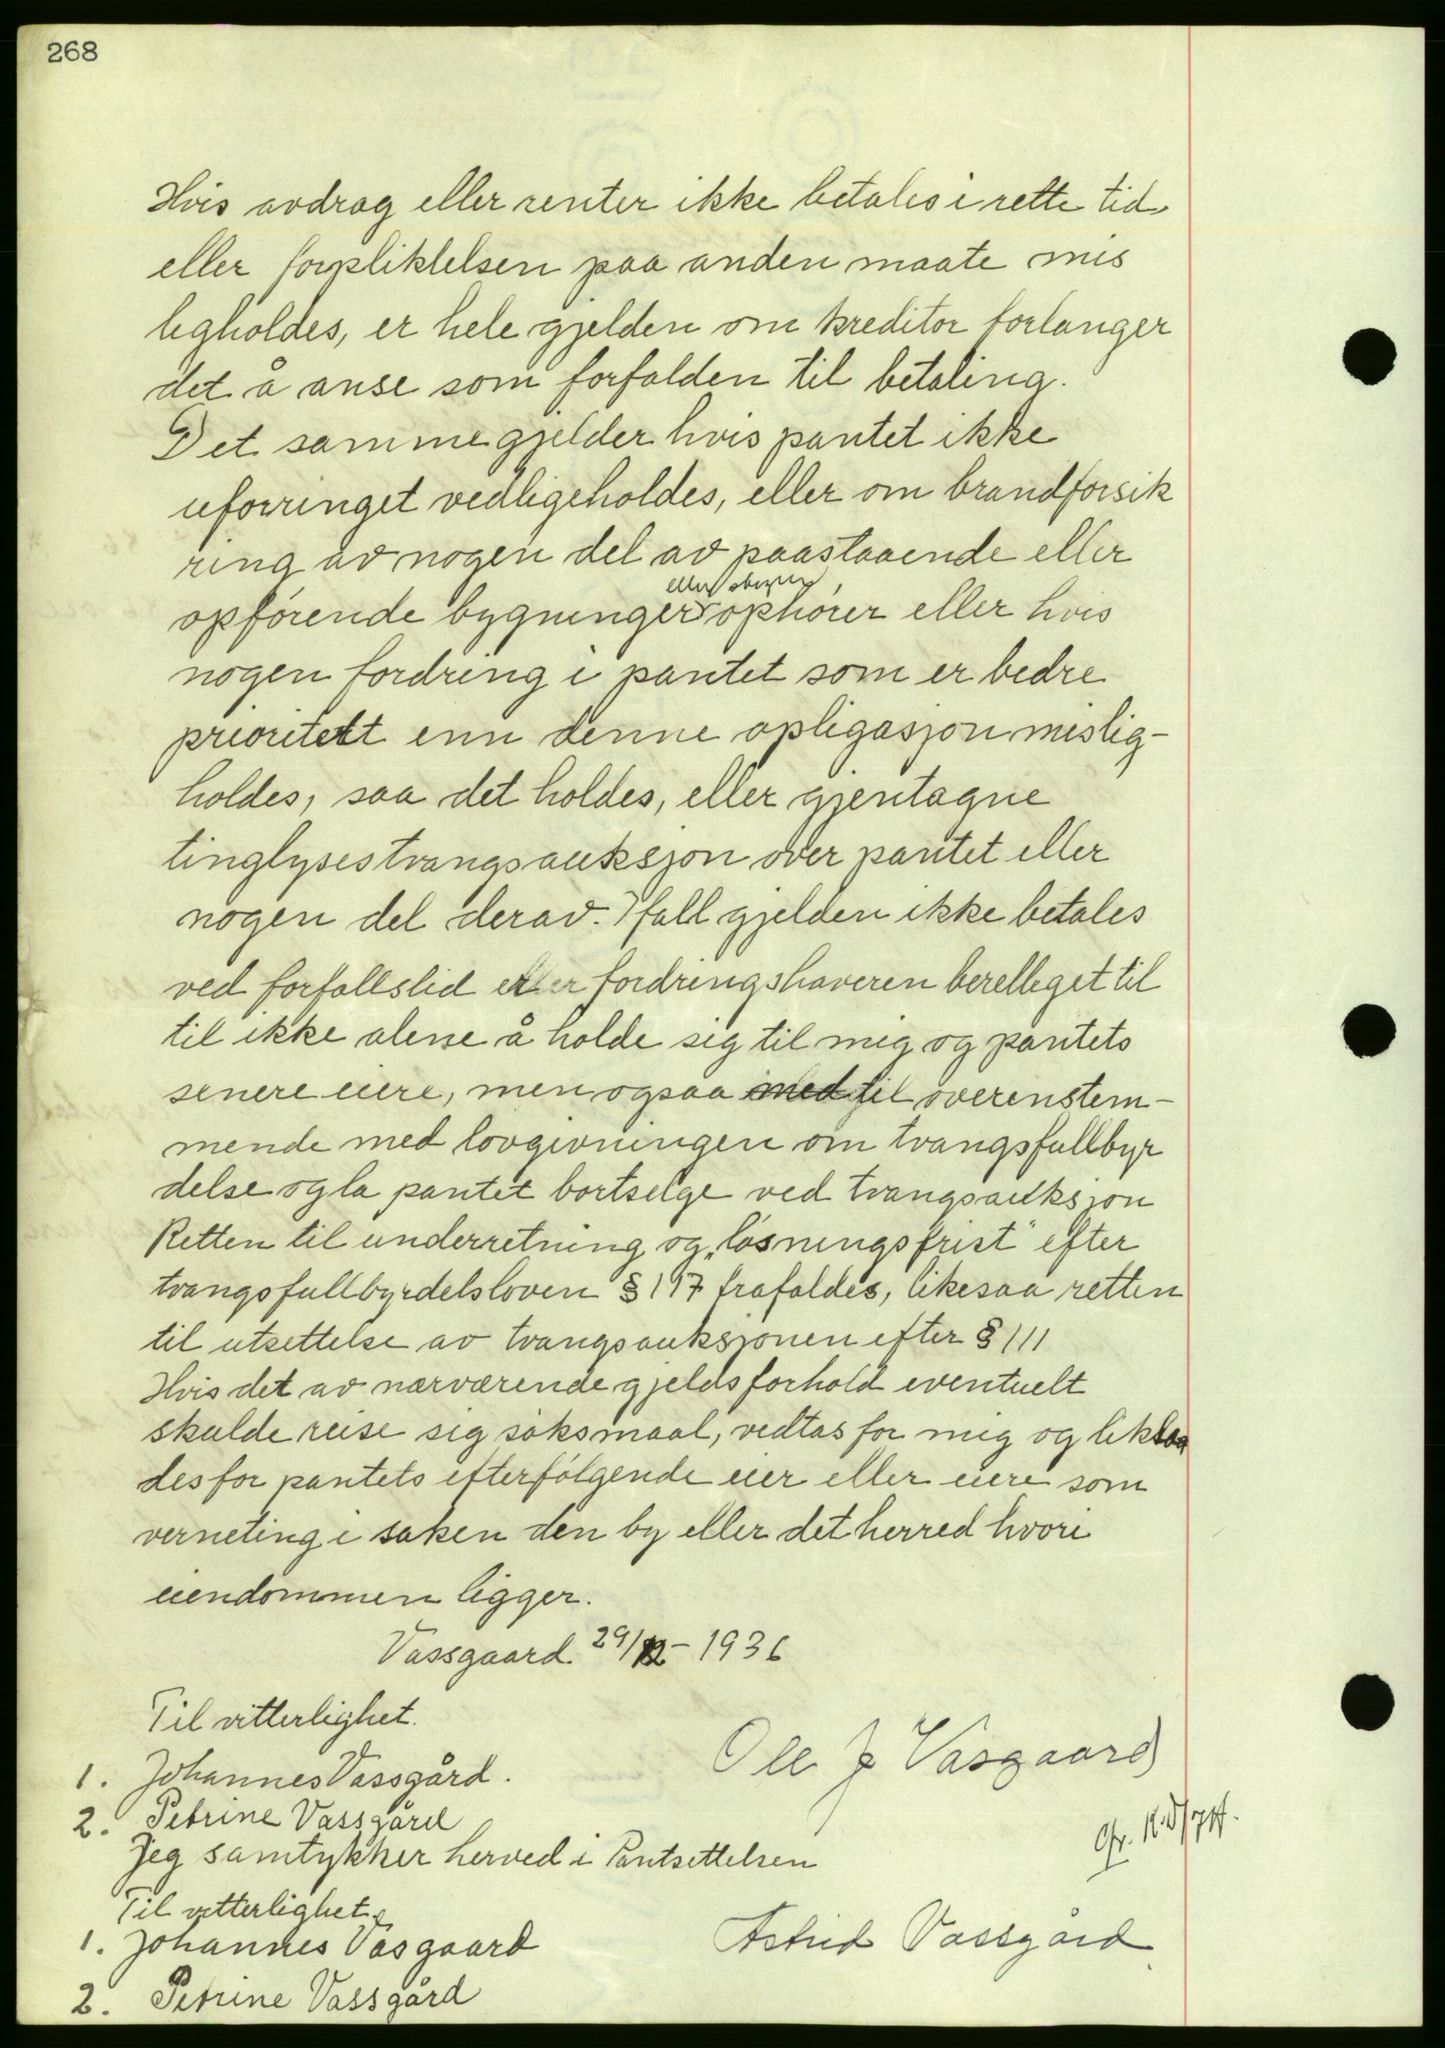 268
Hvis avdrag eller renter ikke betales i rette tid
eller forpliktelsen paa anden maate mis
ligholdes, er hele gjelden om kreditor forlanger
det å anse som forfalden til betaling.
Det samme gjelder hvis pantet ikke
uforringet vedligeholdes, eller om brandforsik
ring av nogen del av paastaaende eller
eller
opførende bygninger ophører eller hvis
nogen fordring i pantet som er bedre
prioritett enn denne opligasjon mislig-
holdes, saa det holdes, eller gjentagne
tinglyses tvangsauksjon over pantet eller
nogen del derav. Ifall gjelden ikke betales
ved forfallstid er fordringshaveren berettiget til
til ikke alene å holde sig til mig og pantets
senere eiere, men ogsaa med til overenstem-
mende med lovgivningen om tvangsfullbyr
delse og la pantet bortselge ved tvangsauksjon
Retten til underretning og „løsningsfrist" efter
tvangsfullbyrdelsloven § 197 frafaldes, likesaa retten
til utsettelse av tvangsauksjonen efter § 111
Hvis det av nærværende gjeldsforhold eventuelt
skulde reise sig søksmaal, vedtas for mig og likesaa
des for pantets efterfølgende eier eller eiere som
verneting i saken den by eller det herred hvori
eiendommen ligger.
Vassgaard 29/12 - 1936
Til vitterlighet.
Ole J Vasgaard
1. Johannes Vassgård.
2. Petrine Vassgård
Jeg samtykker herved i Pantsettelsen
Til vitterlighet.
1. Johannes Vasgaard
Astrid Vassgård
2. Petrine Vassgård